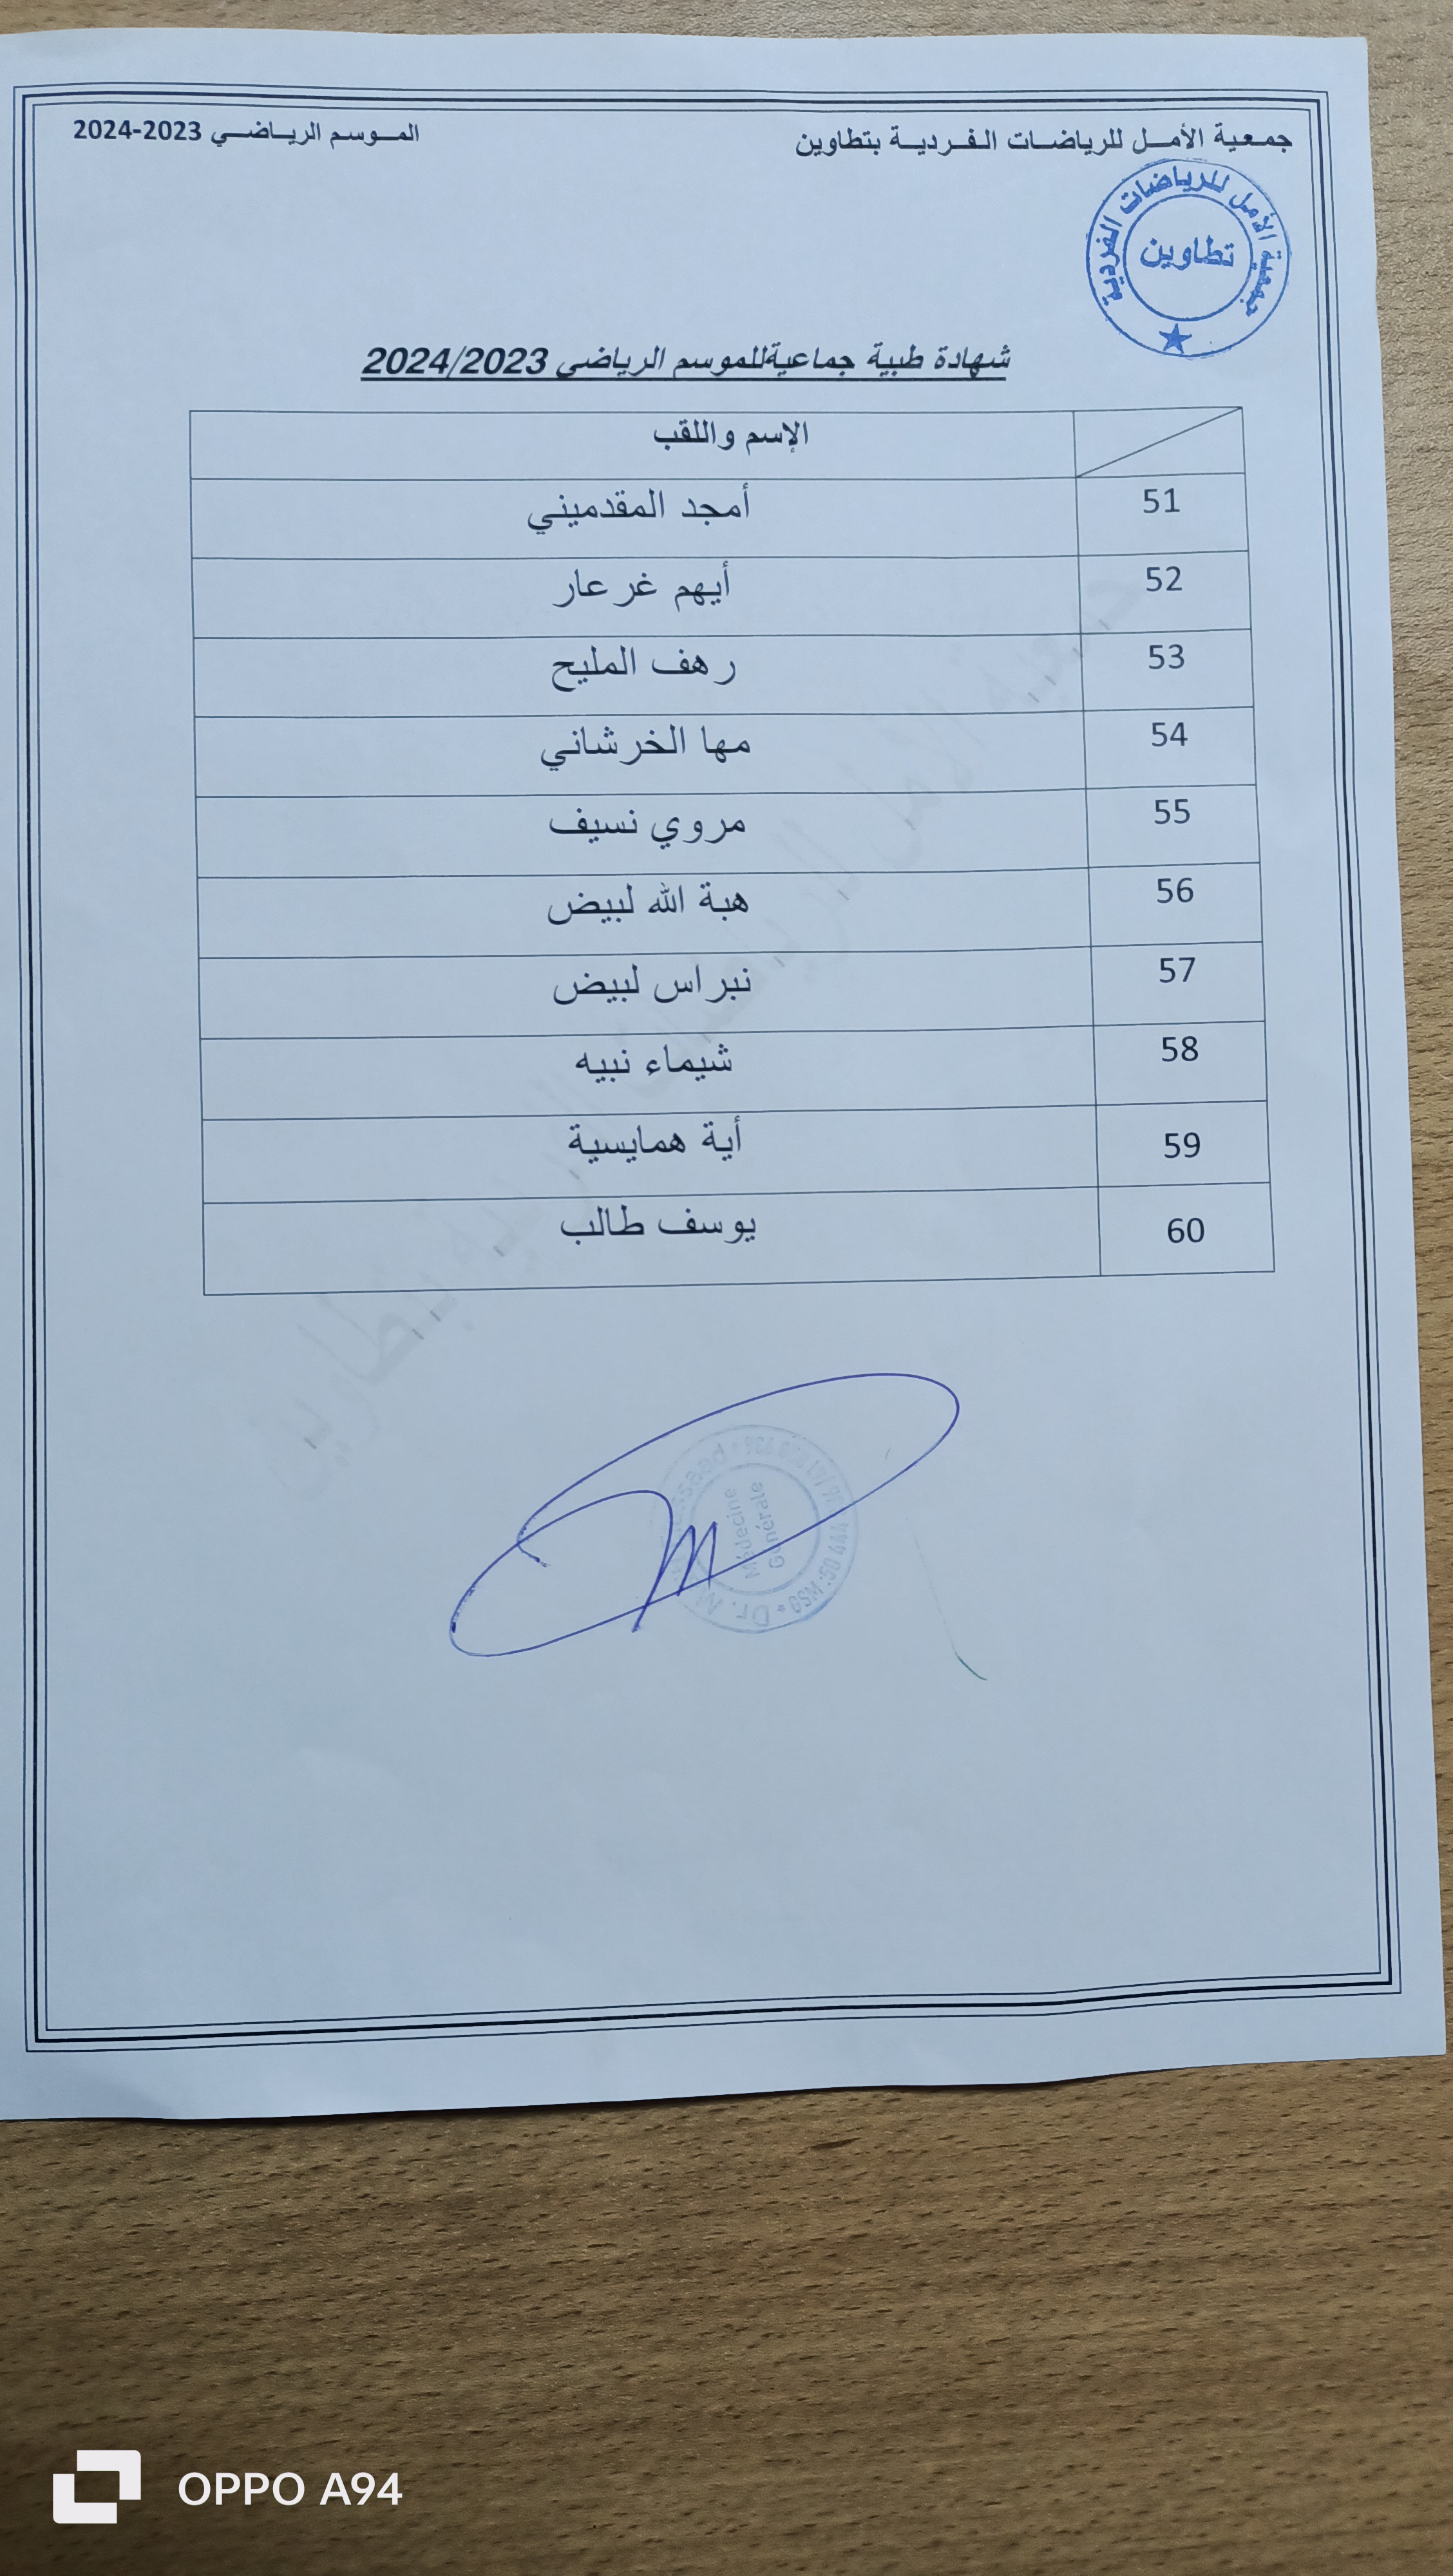 جمعية الأمل للرياضات الفردية بتطاوين
الموسم الرياضي 2023-2024
جمعية الأمل للرياضات الفردية
تطاوين
شهادة طبية جماعيةللموسم الرياضي 2024/2023
الإسم واللقب
51 أمجد المقدميني
52 أيهم غرعار
53 رهف المليح
54 مها الخرشاني
55 مروي نسيف
56 هبة الله لبيض
57 نبراس لبيض
58 شيماء نبيه
59 أية همايسية
60 يوسف طالب
جمعية الأمل للرياضات الفردية بتطاوين
Dr.
Médecine
Générale
GSM :50 444
OPPO A94